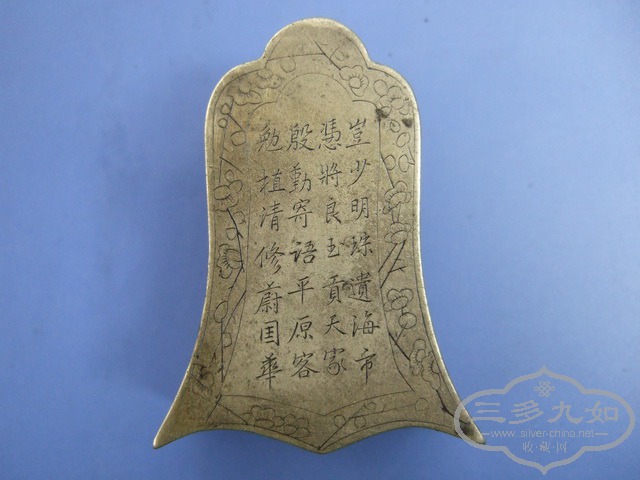 豈少明珠遺海市
憑將良玉貢天家
殷勤寄語平原客
勉植清修蔚囯華
三多九如
www.silver-china.net
收·藏·网